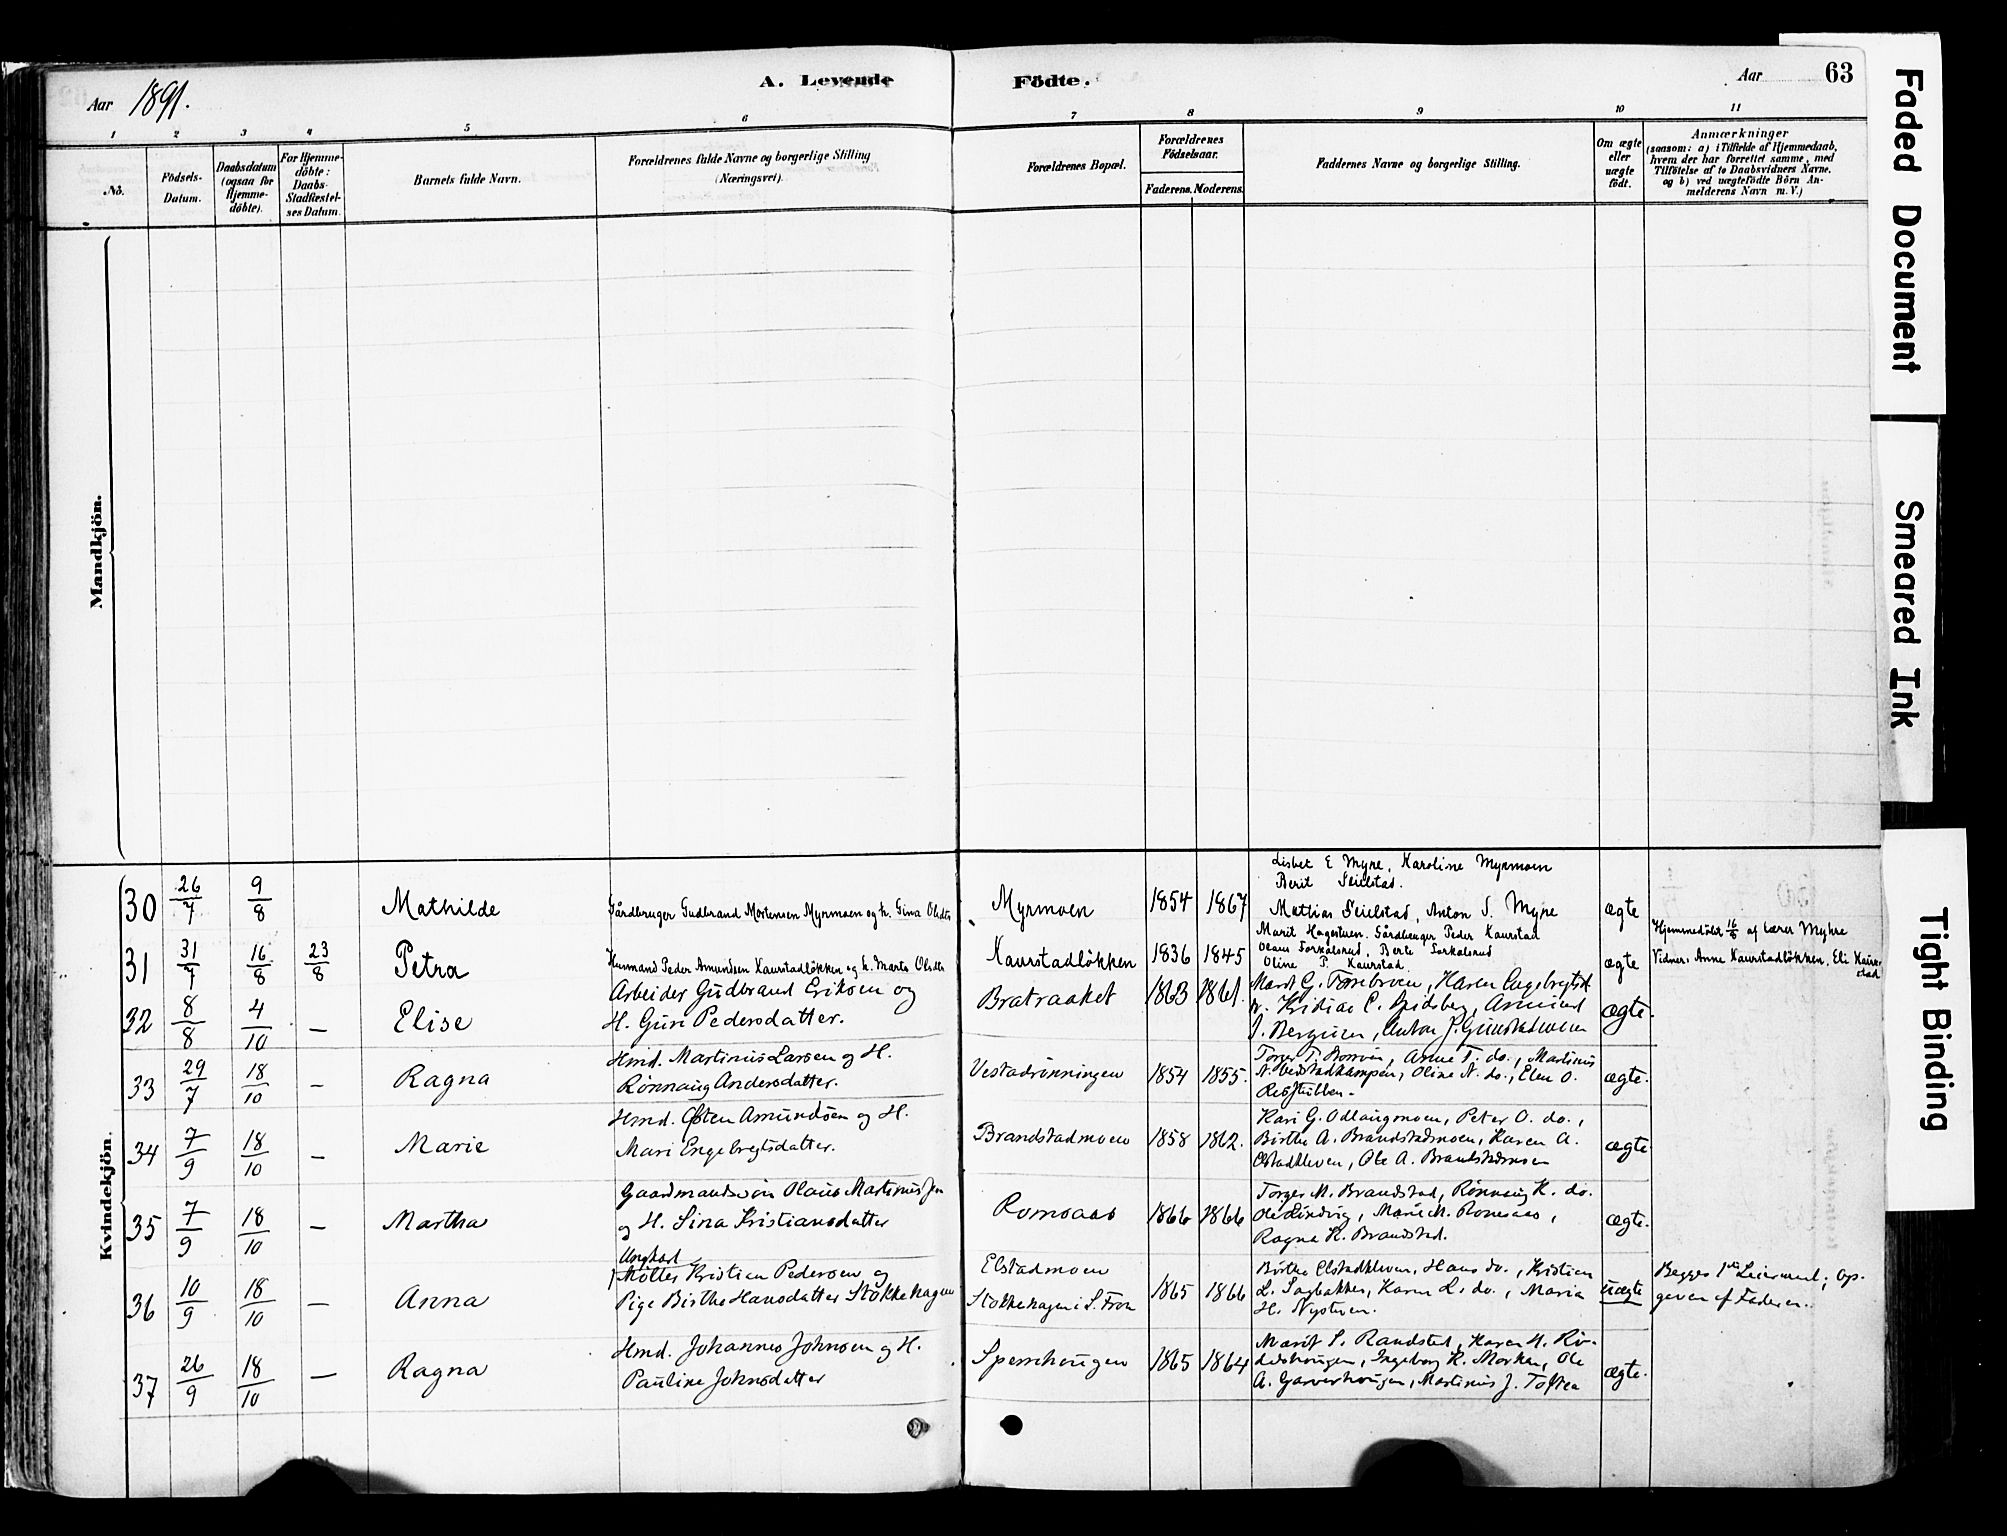 Aar 1891.
A. Levende Födte.
Aar 63
1 2 3 4 5 6 7 8 9 10 11
No.
Födsels-Datum.
Daabsdatum (ogsaa for Hjemme-döbte).
For Hjemme-döbte: Daabs-Stadfæstel-ses Datum.
Barnets fulde Navn.
Forældrenes fulde Navne og borgerlige Stilling
(Næringsvei).
Forældrenes Bopæl.
Forældrenes Födselsaar.
Faderens. Moderens.
Faddernes Navne og borgerlige Stilling.
Om ægte eller uægte födt.
Anmærkninger
(saasom: a) i Tilfælde af Hjemmedaab,
hvem der har forrettet samme, med
Tilföielse af to Daabsvidners Navne.
og b) ved uægtefödte Börn An-
melderens Navn m. V.)
Mandkjön.
Kvindekjön.
Lisbet E Myre, Karoline Myrmoen
Berit Seielstad.
30 26/7 9/8 Mathilde Gårdbruger Gudbrand Mortensen Myrmoen og h. Gina Olsdtr Myrmoen 1854 1867 Mathias Seielstad, Anton S. Myre ægte
Marit Hagestuen. Gårdbruger Peder Kaurstad
Hjemmedöbt 16/8 af Lærer Myhre
31 31/7 16/8 23/8 Petra Husmand Peder Amundsen Kaurstadløkken og h. Marte Olsdtr Kaurstadløkken 1836 1845 Olaus Forkalsrud, Berte Forkalsrud
Oline P. Kaurstad. ægte
Vidner: Anne Kaurstadløkken. Eli Kaur-
stad
32 8/8 4/10 — Elise Arbeider Gudbrand Eriksen og
H. Guri Pedersdatter. Bratraaket 1863 1861. Marit G. Karen Engebrigtsd.
Anton J. ægte.
33 29/7 18/10 — Ragna Hmd. Martinus Larsen og H.
Rønnaug Andersdatter. Vestadrønningen 1854 1855. Torger T. Anne T. do., Martinus
N. Vestadkampen, Oline N. do., Elen O.
ægte.
34 7/9 18/10 — Marie Hmd. Østen Amundsen og H.
Mari Engebregtsdatter. Brandstadmoen 1858 1862. Kari G. Odlaugmoen, Peter O. do.,
Birthe A. Brandstadmoen, Karen A.
Elstadkleven, Ole A. Brandstadmoen ægte.
35 7/9 18/10 — Martha Gaardmandssøn Olaus Martinussen
og H. Sina Kristiansdatter Romsaas 1866 1866 Torger M. Brandstad, Rønnaug K. do.
Ole Marie M. Romsaas,
Ragna K. Brandstad. ægte.
36 10/9 18/10 — Anna Ungkarl
Møller Kristian Pedersen og
Pige Birthe Hansdatter Stokkehagen Elstadmoen
Stokkehagen i S. Fron 1865 1866 Birthe Elstadkleven, Hans do., Kristian
L. Karen L. do., Maria
H. Nystuen. uægte
Begges 1ste Leiermaal; Op-
given af Faderen.
37 26/9 18/10 — Ragna Hmd. Johannes Johnsen og H.
Pauline Johnsdatter Spernhougen 1865 1864 Marit S. Randsted, Karen H.
Ingeborg K. Morken, Ole
A. Garverhougen, Martinus J. Toftea ægte.
Faded Document
Smeared Ink
Tight Binding